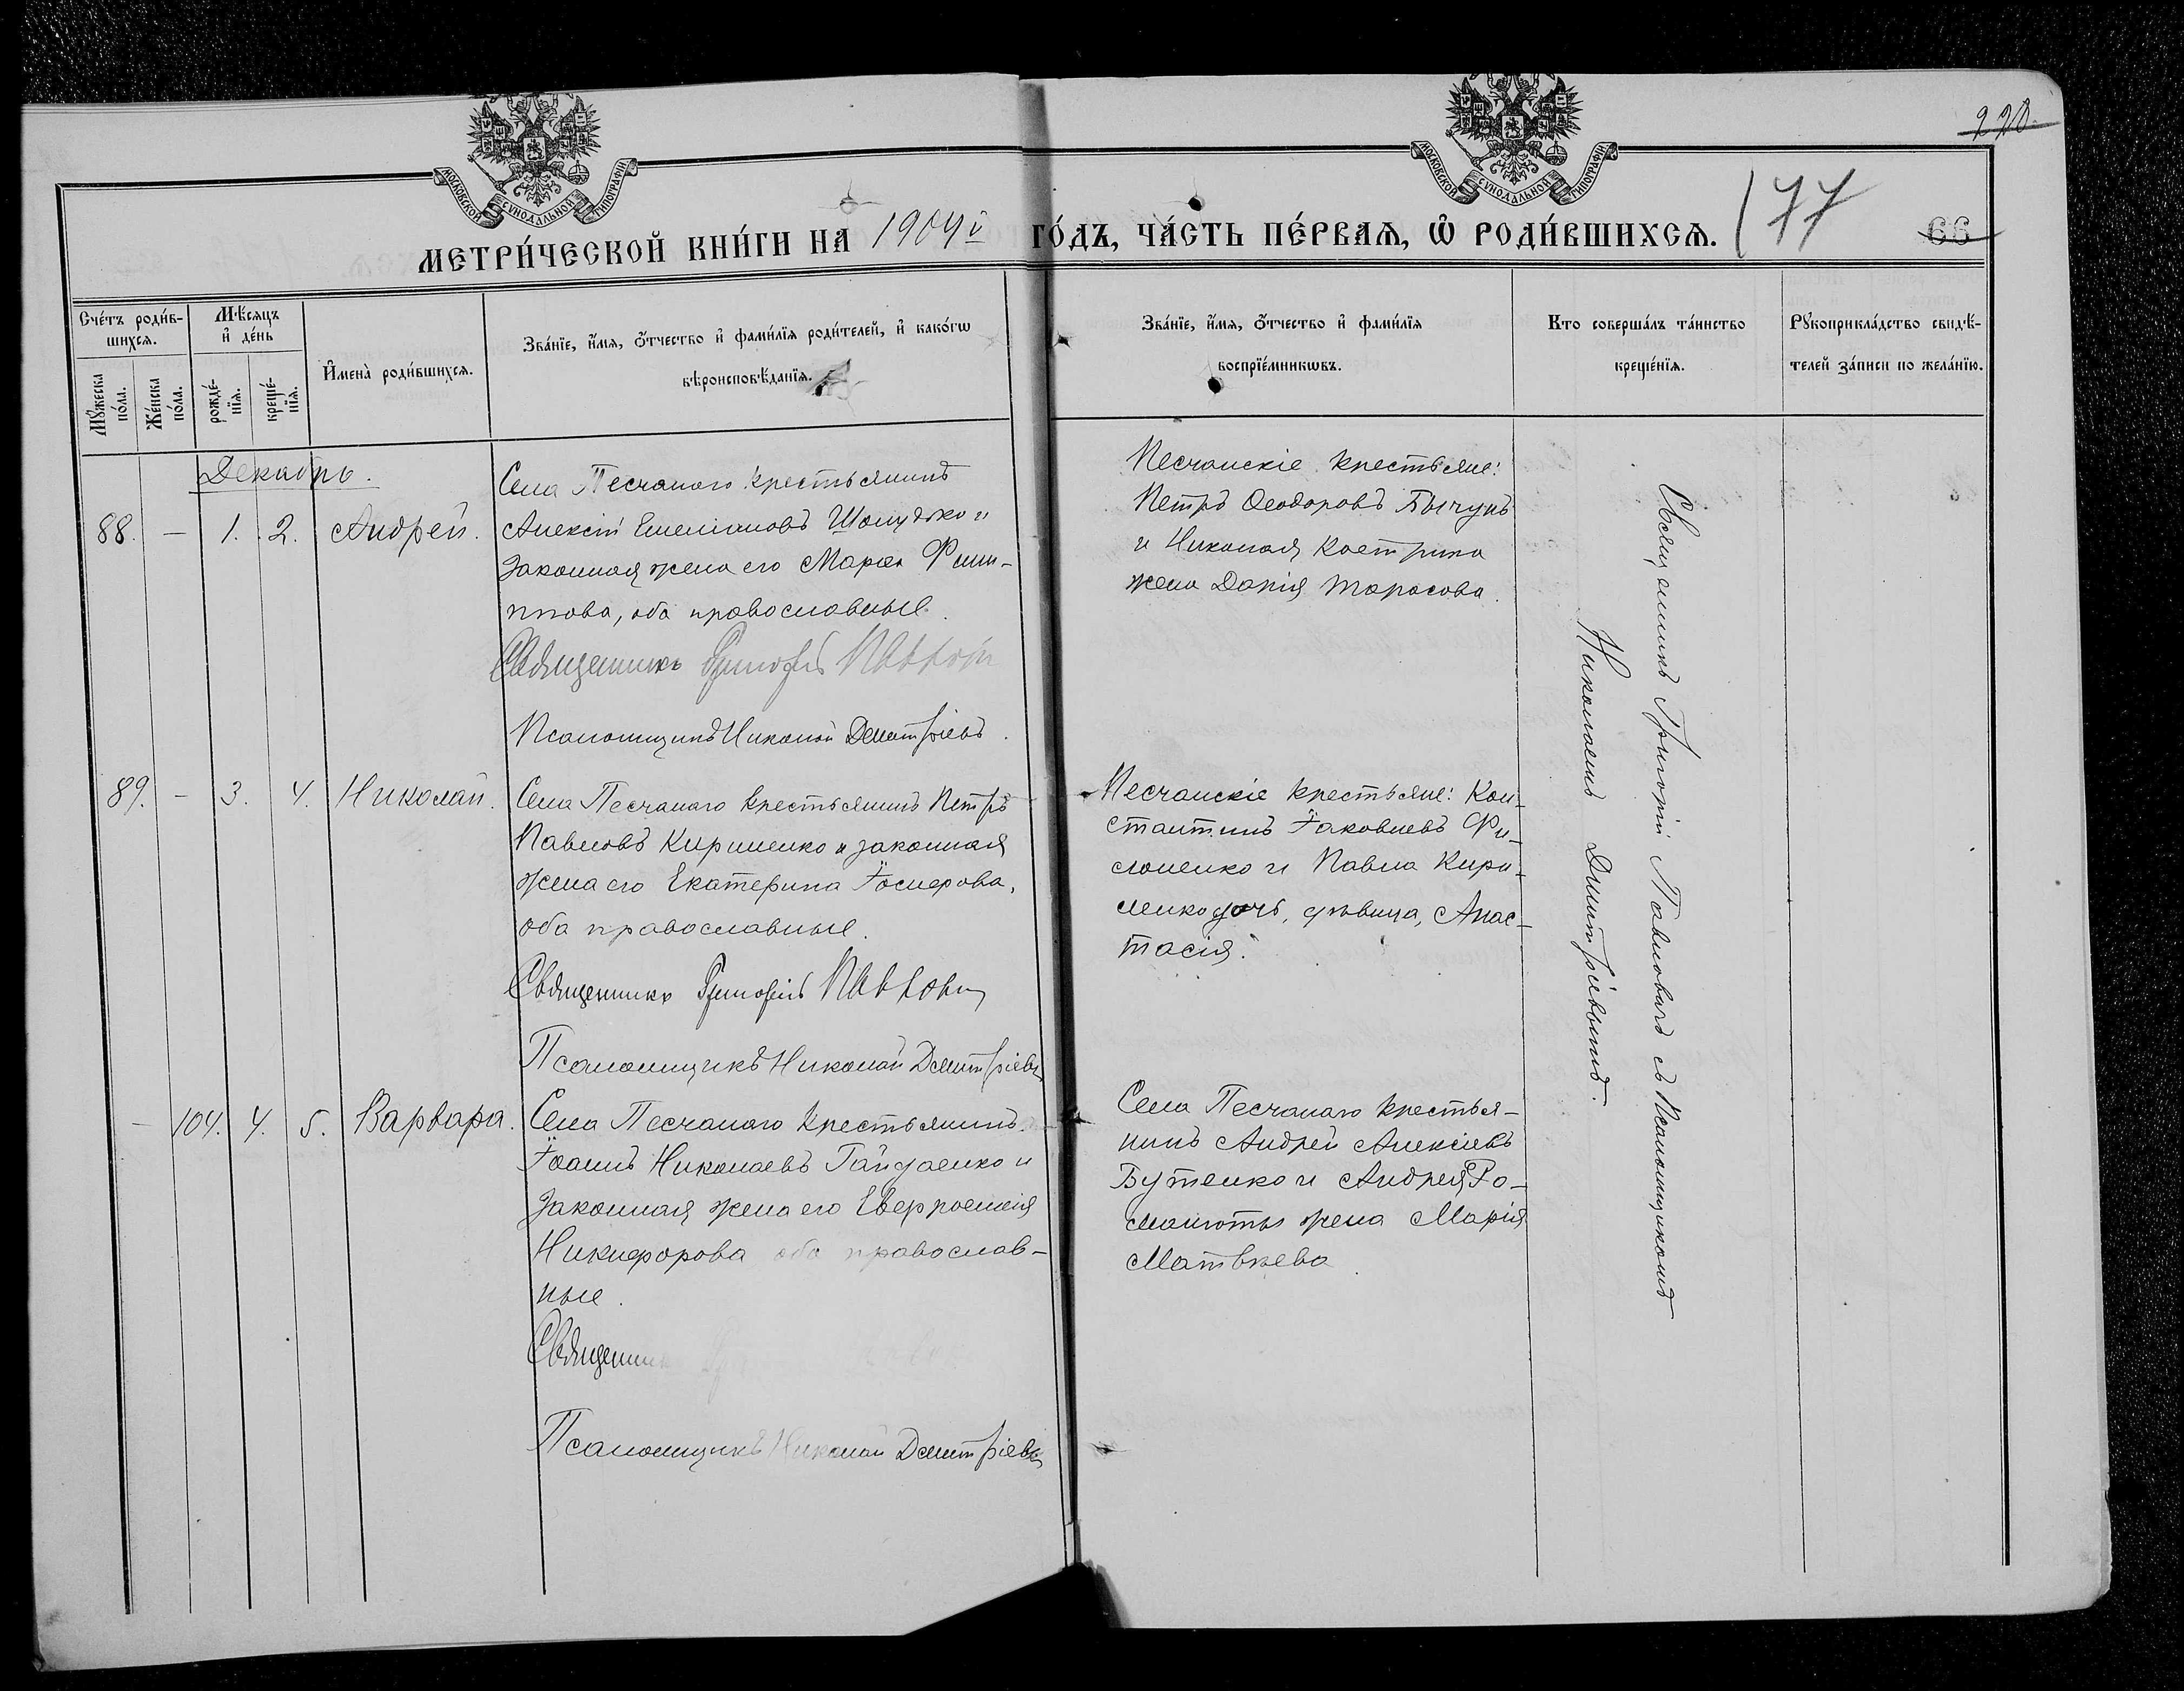 МОСКОВСКОЙ СУНОДАЛЬНОЙ ТИПОГРАФІИ
МОСКОВСКОЙ СУНОДАЛЬНОЙ ТИПОГРАФІИ
220
МЕТРИ́ЧЕСКОЙ КНИ́ГИ НА 1904й ГО́ДЪ, ЧА́СТЬ ПЕ́РВАѦ, Ѡ РОДИ́ВШИХСѦ.
177
66
Сче́тъ роди́в-
шихсѧ.
Мꙋ́жеска по́ла.
Же́нска по́ла.
Мѣ́сѧцъ
и де́нь
рожде́-
нїѧ.
креще́-
нїѧ.
И҆мена̀ роди́вшихсѧ.
Зва́нїе, и҆́мѧ, ѻ҆́тчество и҆ фами́лїѧ роди́телей, и҆ како́гѡ
вѣроисповѣ́данїѧ.
Зва́нїе, и҆́мѧ, ѻ҆́тчество и҆ фами́лїѧ
воспрїе́мникѡвъ.
Кто соверша́лъ та́инство
креще́нїѧ.
Рꙋкоприкла́дство свидѣ́-
телей за́писи по жела́нїю.
Декабрь.
88. — 1. 2. Андрей.
Села Песчанаго крестьянинъ
Алексій Емеліановъ Шолудько и
законная жена его Марія Фили-
ппова, оба православные.
Священникъ Григорій Павловъ
Псаломщикъ Николай Демитріевъ.
Песчанскіе крестьяне:
Петръ Ѳеодоровъ Бычунъ
и Николая Костриба
жена Дарія Тарасова.
89. — 3. 4. Николай.
Села Песчанаго крестьянинъ Петръ
Павловъ Кириленко и законная
жена его Екатерина Іосифова,
оба православные.
Священникъ Григорій Павловъ
Псаломщикъ Николай Демитріевъ
Песчанскіе крестьяне: Кон-
стантинъ Іаковлевъ Фи-
лоненко и Павла Кири-
ленко дочь, дѣвица, Анас-
тасія.
— 104. 4. 5. Варвара.
Села Песчанаго крестьянинъ
Іоаннъ Николаевъ Гайдаенко и
законная жена его Евфросинія
Никифорова оба православ-
ные.
Священникъ
Псаломщикъ Николай Демитріевъ
Села Песчанаго крестья-
нинъ Андрей Алексіевъ
Бутенко и Андрея Ро-
манюты жена Марія
Матвѣева
Священникъ Григорій Павловъ съ Псаломщикомъ
Николаемъ Димитріевымъ.